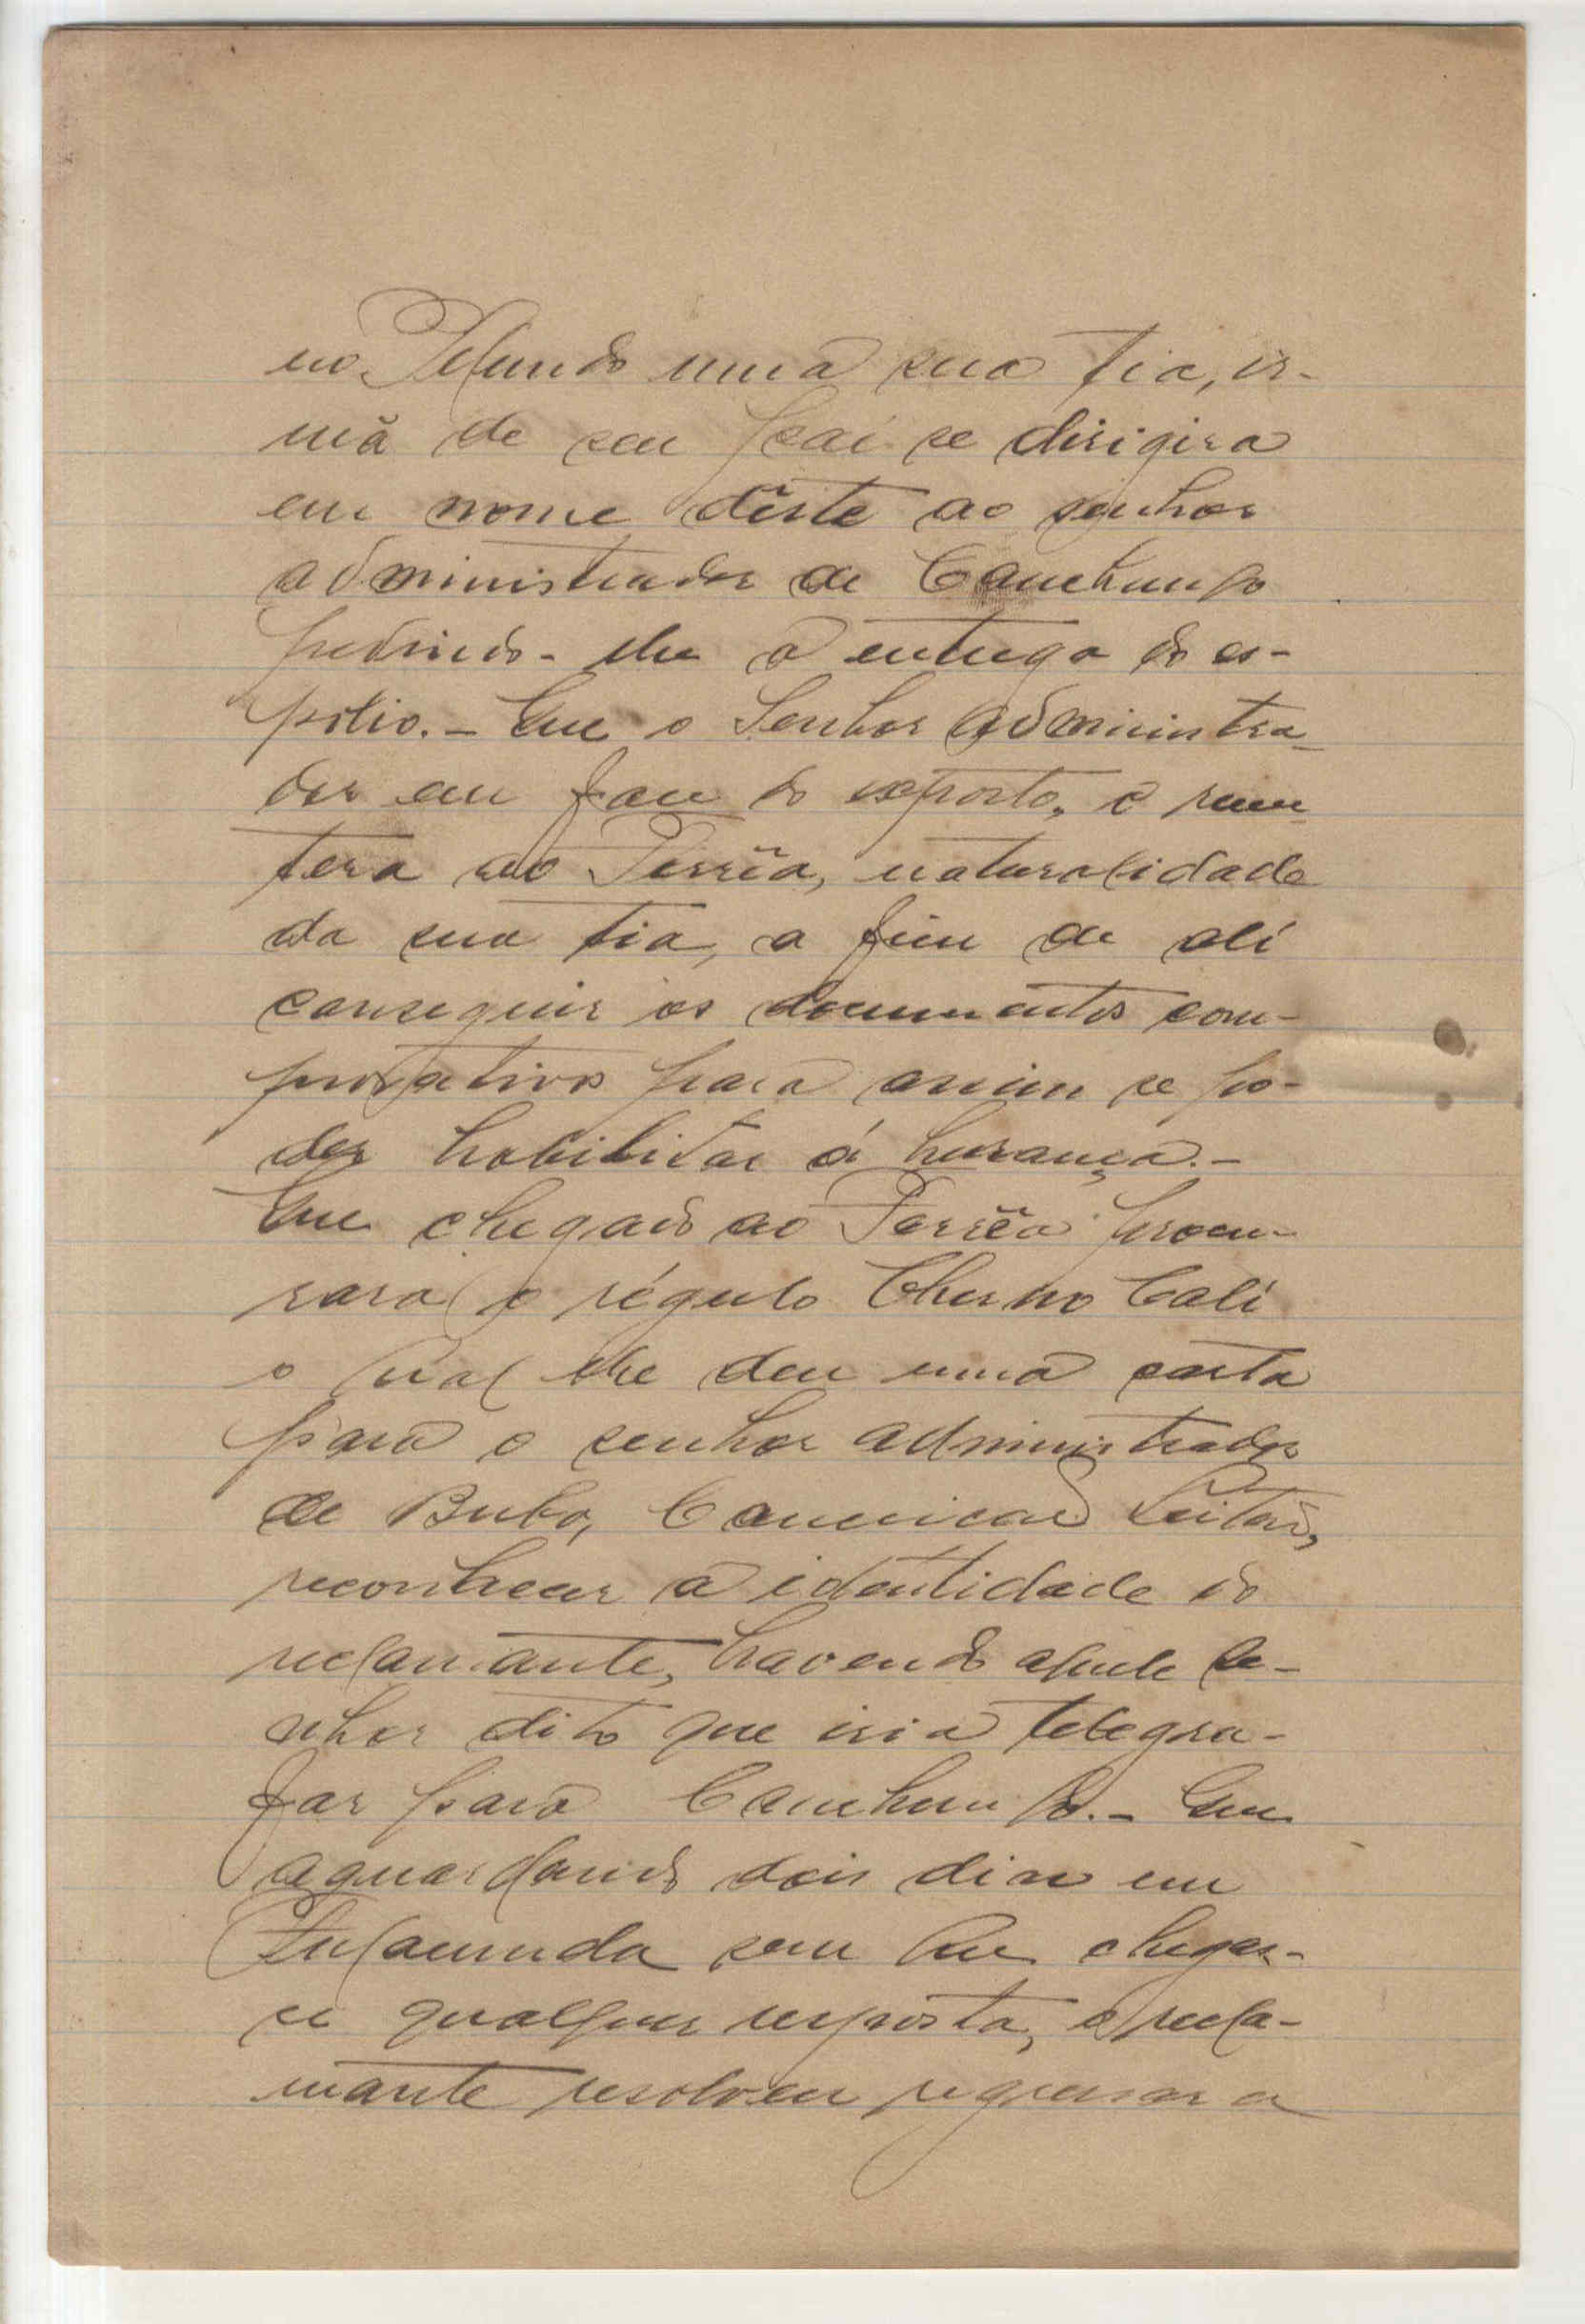 no Pelundo uma sua tia, ir-
mã de seu pai se dirigira
em nome dêste ao senhor
administrador de Canchungo
pedindo-lhe a entrega do es-
pólio.- Que o Senhor Administra-
dor em face do exposto, o reme-
tera ao Forrêa, naturalidade
da sua tia, a fim de ali
conseguir os documentos com-
provativos para assim se po-
der habilitar á herança.-
Que chegado ao Forrêa procu-
rara o régulo Cherno Cali
o qual lhe deu uma carta
para o senhor administrador
de Buba, Leitão,
reconhecer a identidade do
reclamante, havendo aquele se-
nhor dito que iria telegra-
far para Canchungo.- Que
aguardando dois dias em
Fulacunda sem que chegas-
se qualquer resposta, o recla-
mante resolveu regressar a